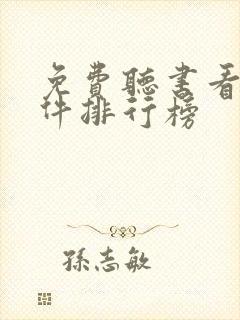 免費聽書看
件排行榜
孫志敏